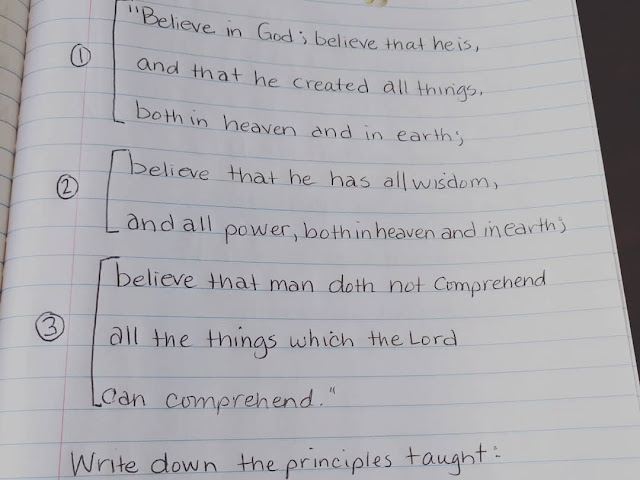 "Believe in God; believe that he is,
① and that he created all things,
both in heaven and in earth;
② believe that he has all wisdom,
and all power, both in heaven and in earth;
believe that man doth not comprehend
③ all the things which the Lord
can comprehend."
Write down the principles taught: